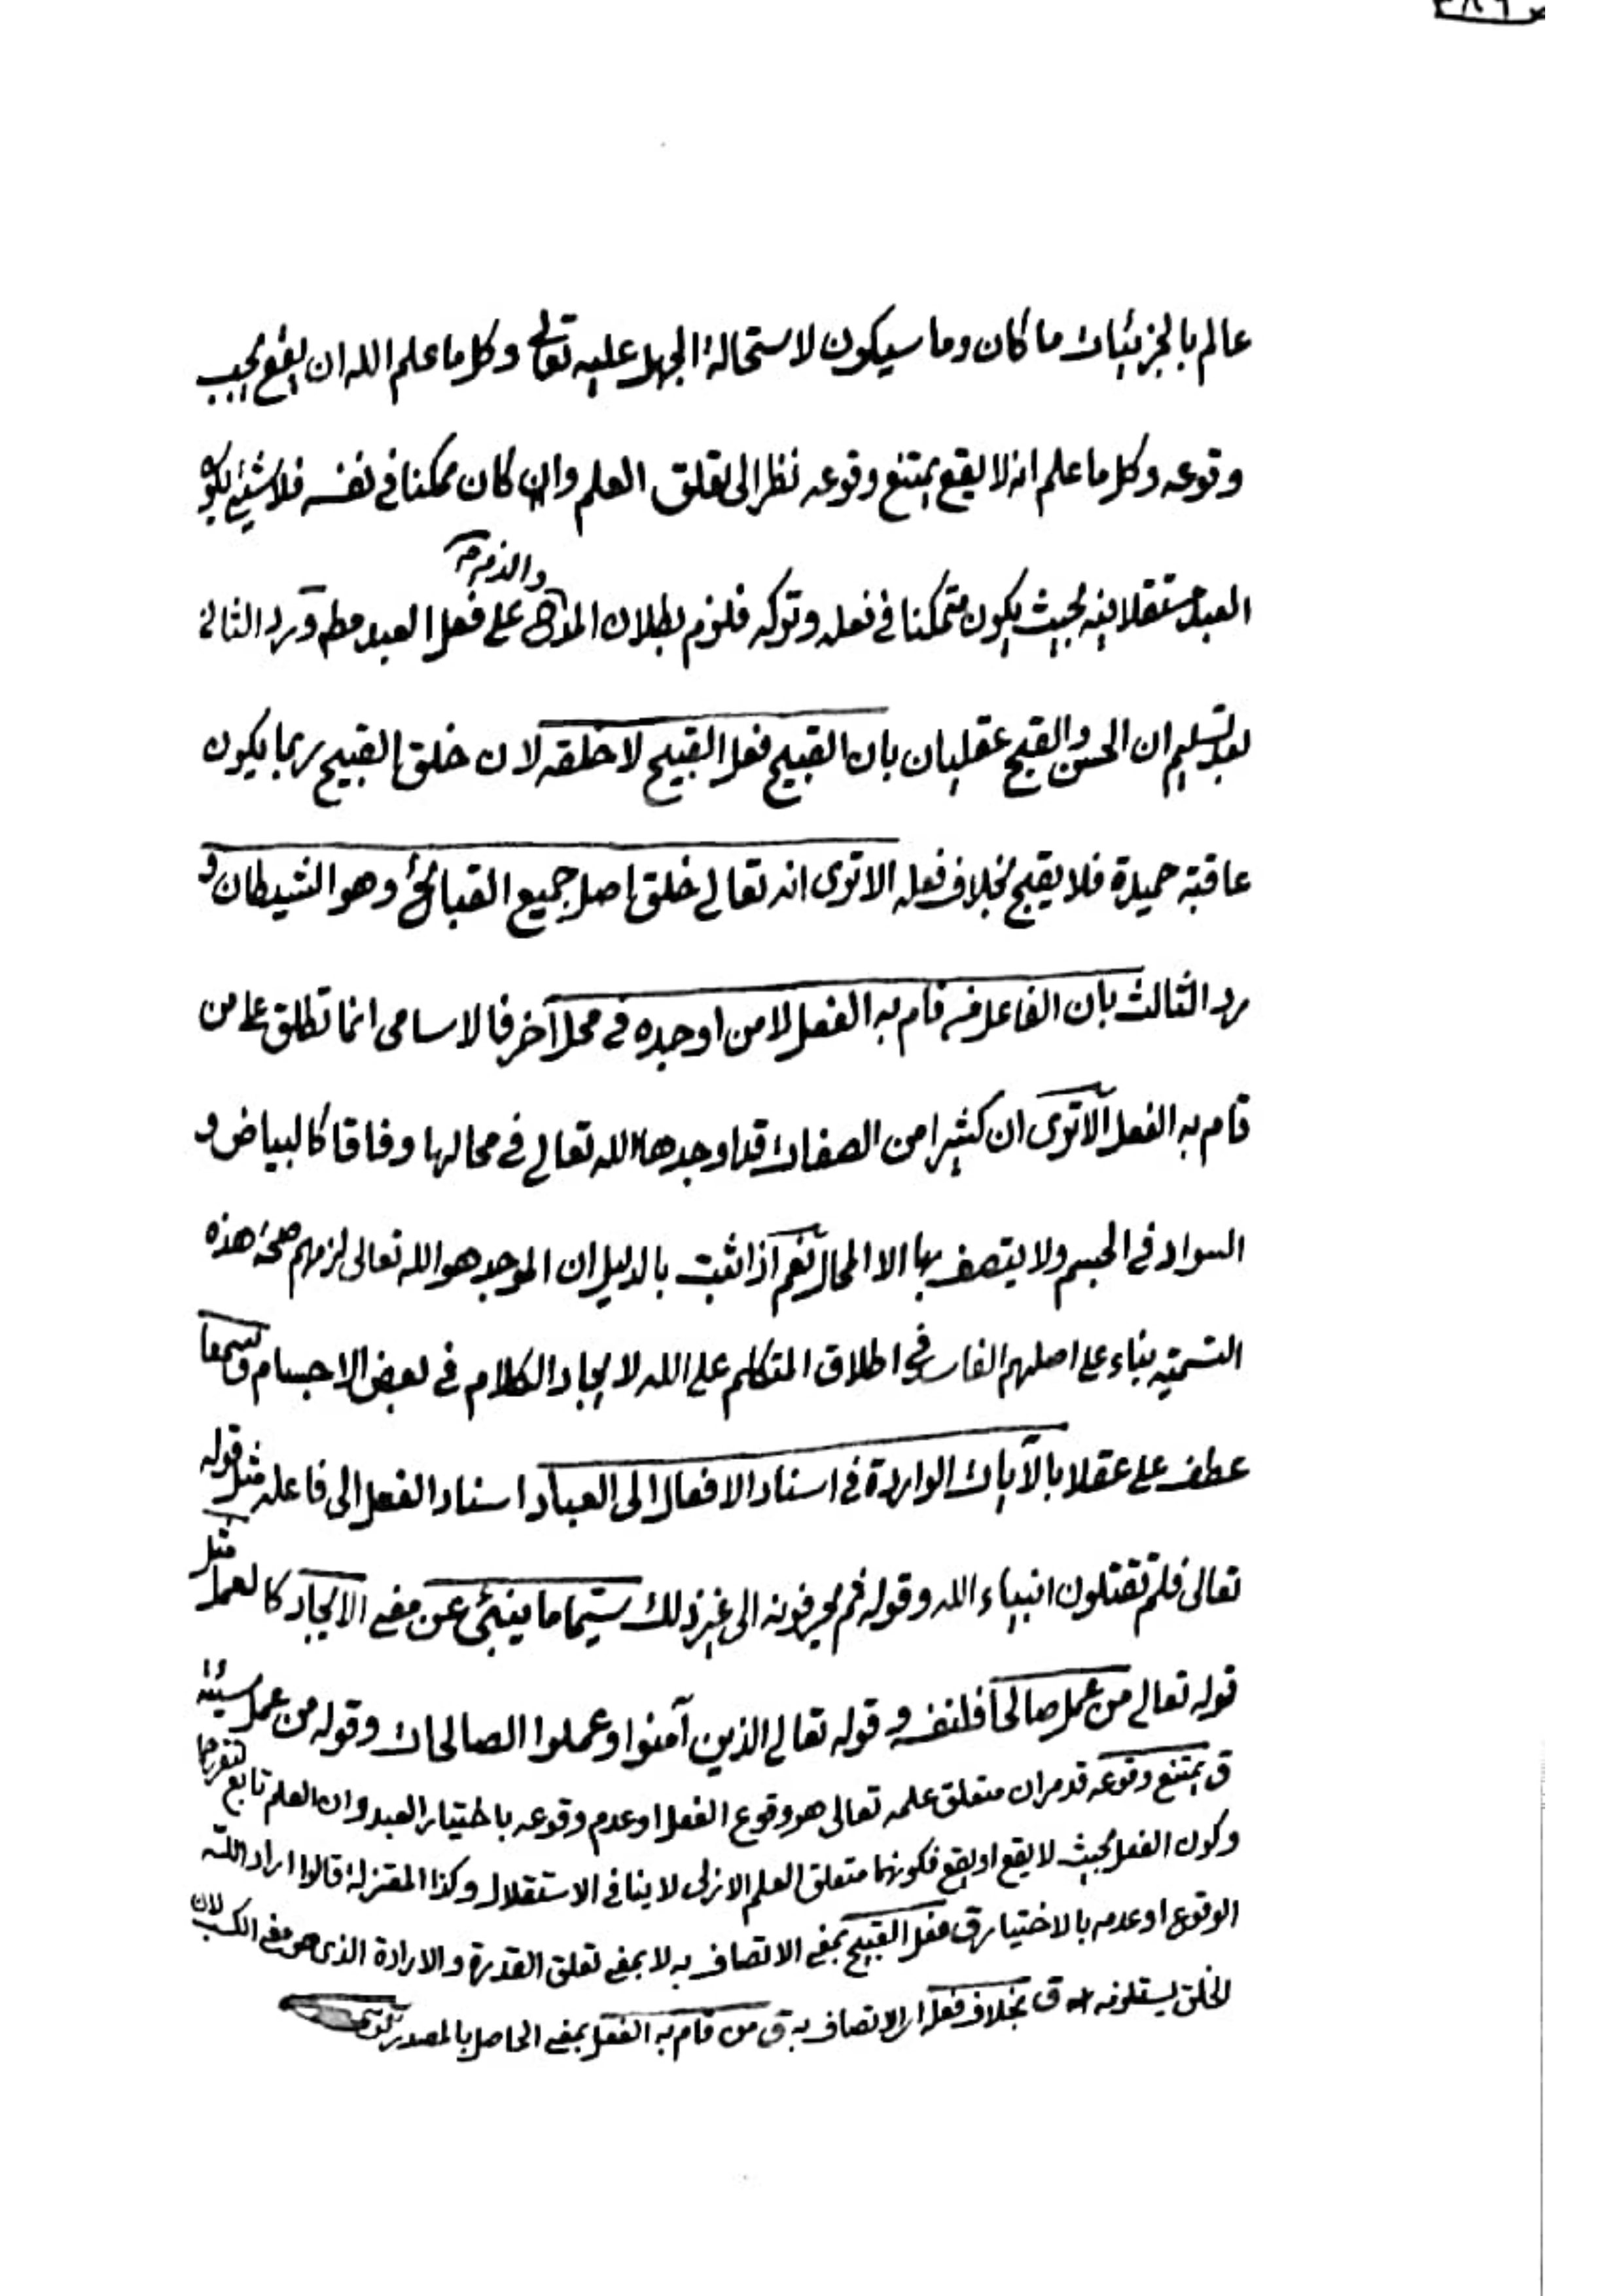 عالم بالجزئيات ما كان وما سيكون لاستحالة الجهل عليه تعالى وكل ما علم الله ان يقع يجب
وقوعه وكل ما علم انه لا يقع يمتنع وقوعه نظرا الى تعلق العلم وان كان ممكنا في نفسه فلا شيئ يكون
والذم
العبد مستقلا فيه بحيث يكون متمكنا في فعله وتركه فلزم بطلان المدح على فعل العبد مط ورد الثاني
بعد تسليم ان الحسن والقبح عقليان بان القبيح فعل القبيح لا خلقه لان خلق القبيح ربما يكون
عاقبة حميدة فلا يقبح بخلاف فعله الا ترى انه تعالى خلق اصل جميع القبائح وهو الشيطان و
رد الثالث بان الفاعل من قام به الفعل لا من اوجده في محل آخر فالاسامى انما تطلق على من
قام به الفعل الا ترى ان كثيرا من الصفات قد اوجدها الله تعالى في محالها وفاقا كالبياض و
السواد في الجسم ولا يتصف بها الا المحال نعم اذا ثبت بالدليل ان الموجد هو الله تعالى لزمهم صحة هذه
التسمية بناء على اصلهم الفاسد في اطلاق المتكلم على الله لايجاد الكلام في بعض الاجسام وسمعا
عطف على عقلا بالآيات الواردة في اسناد الافعال الى العباد اسناد الفعل الى فاعله مثل قوله
تعالى فلم تقتلون انبياء الله وقوله ثم يحرفونه الى غير ذلك سيّما ما ينبئ عن معنى الايجاد كالعمل مثل
قوله تعالى من عمل صالحا فلنفسه وقوله تعالى الذين آمنوا وعملوا الصالحات وقوله من عمل سيئة
ق يمتنع وقوعه قد مر ان متعلق علمه تعالى هو وقوع الفعل او عدم وقوعه باختيار العبد وان العلم تابع
وكون الفعل بحيث لا يقع او يقع فكونهما متعلق العلم الازلى لا ينافى الاستقلال وكذا المعتزلة قالوا اراد الله
الوقوع او عدمه بالاختيار ق فعل القبيح بمعنى الاتصاف به لا بمعنى تعلق القدرة والارادة الذى هو معنى الكسب لان
الخلق يستلزمه ق بخلاف فعله اى الاتصاف به ق من قام به الفعل بمعنى الحاصل بالمصدر